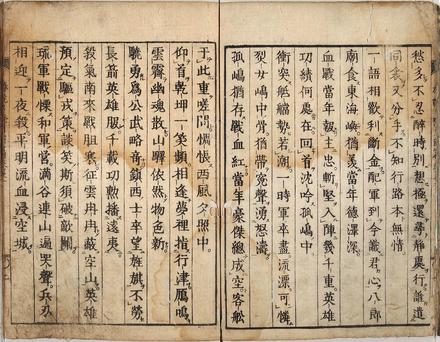 愁多不忍醉時別想極還尋靜處行誰遣
同衾又分手不知行路本無情
一語相歡利斷金配軍到今識君心八郎
廟食東海嶼猶羨當年德澤深
血戰當年報主忠斬堅入陣幾千重英雄
功績何處在回首沈吟孤嶋中
衝突舩艡勢若潮一時軍卒盡流漂可憐
裂女嶋中骨猶帶寃聲湧怒濤
孤嶋猶存戰血紅當年豪傑總成空客舩
于此重嗟問惆悵西風夕照中
仰首乾坤一笑頻相逢夢裡指行津鴈鳴
雲霽幽魂散山驛依然物色新
驍勇為公武略音鎮西士卒望旌旗不勞
長箭英雄服千載功勲播遠夷
殺氣南來戰胆寒征雲冉冉蔽空山英雄
預定驅戎策談笑斯須破敵關
琉軍戰慄和軍管滿谷連山遍哭聲兵刃
相迎一夜殺平明流血浸空城